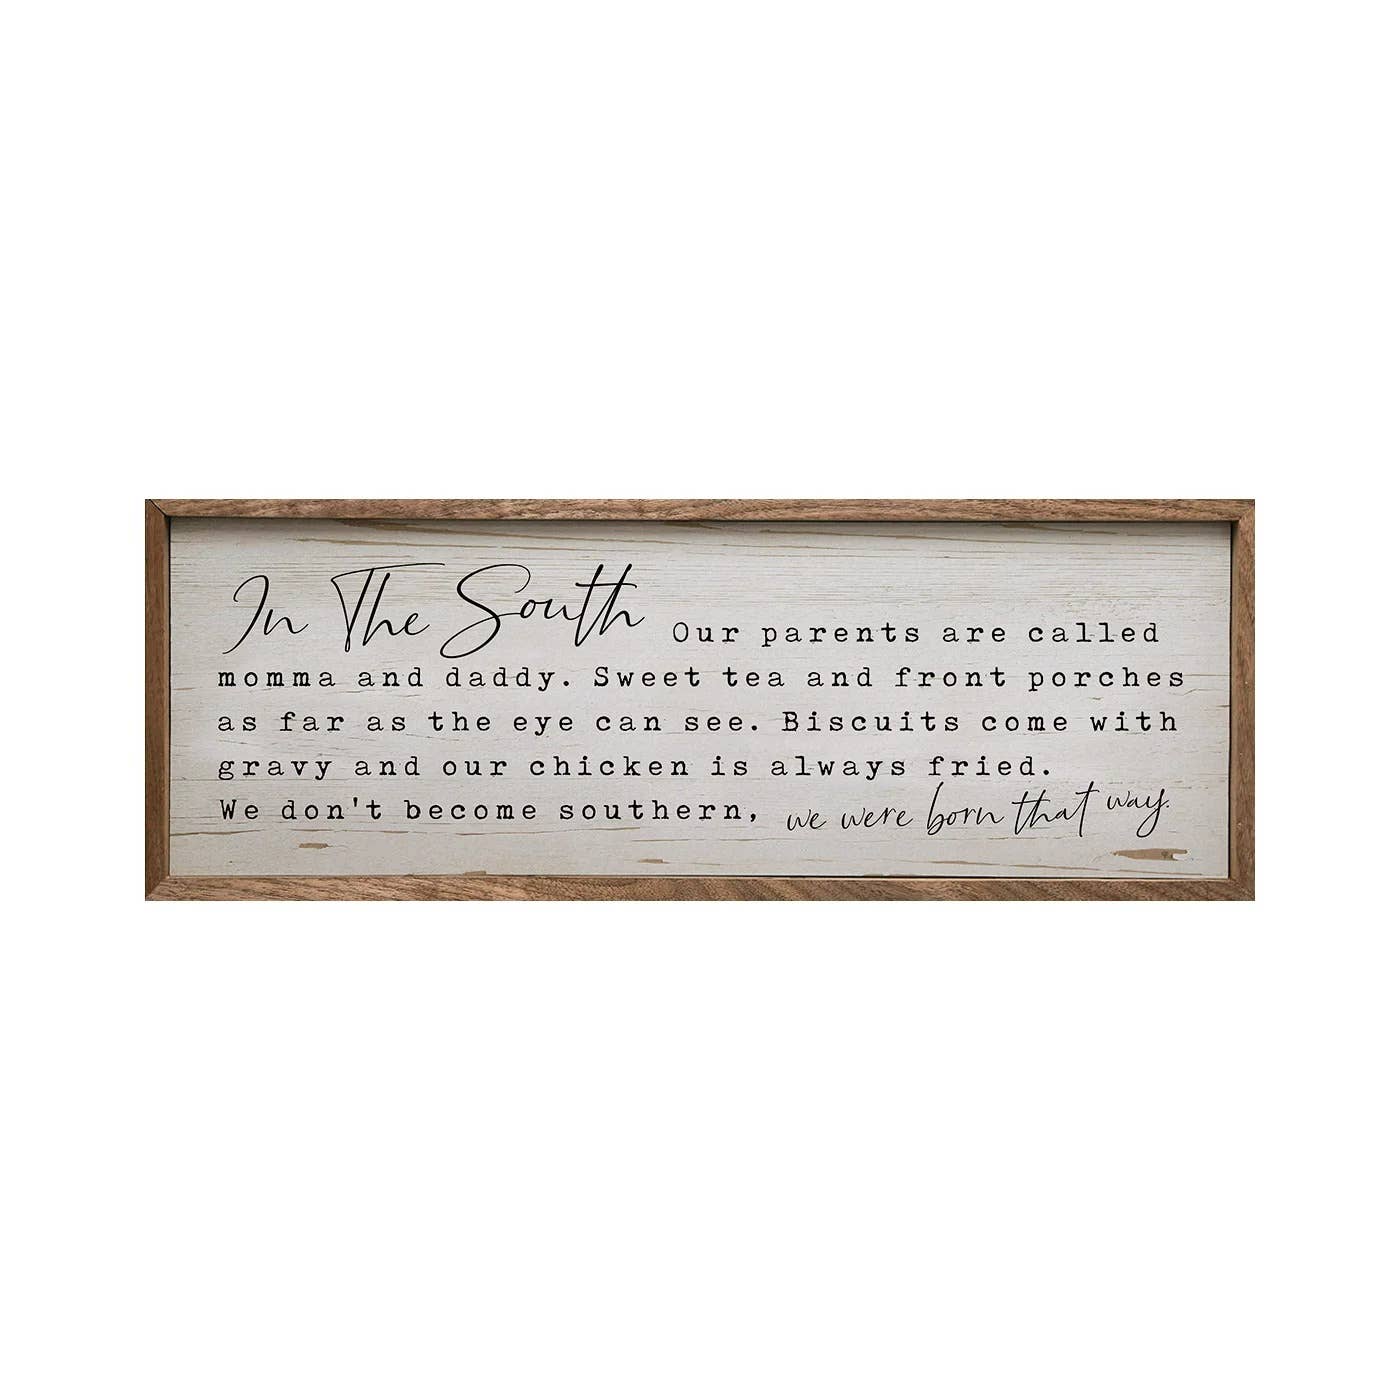 In The South Our parents are called
momma and daddy. Sweet tea and front porches
as far as the eye can see. Biscuits come with
gravy and our chicken is always fried.
We don't become southern, we were born that way.